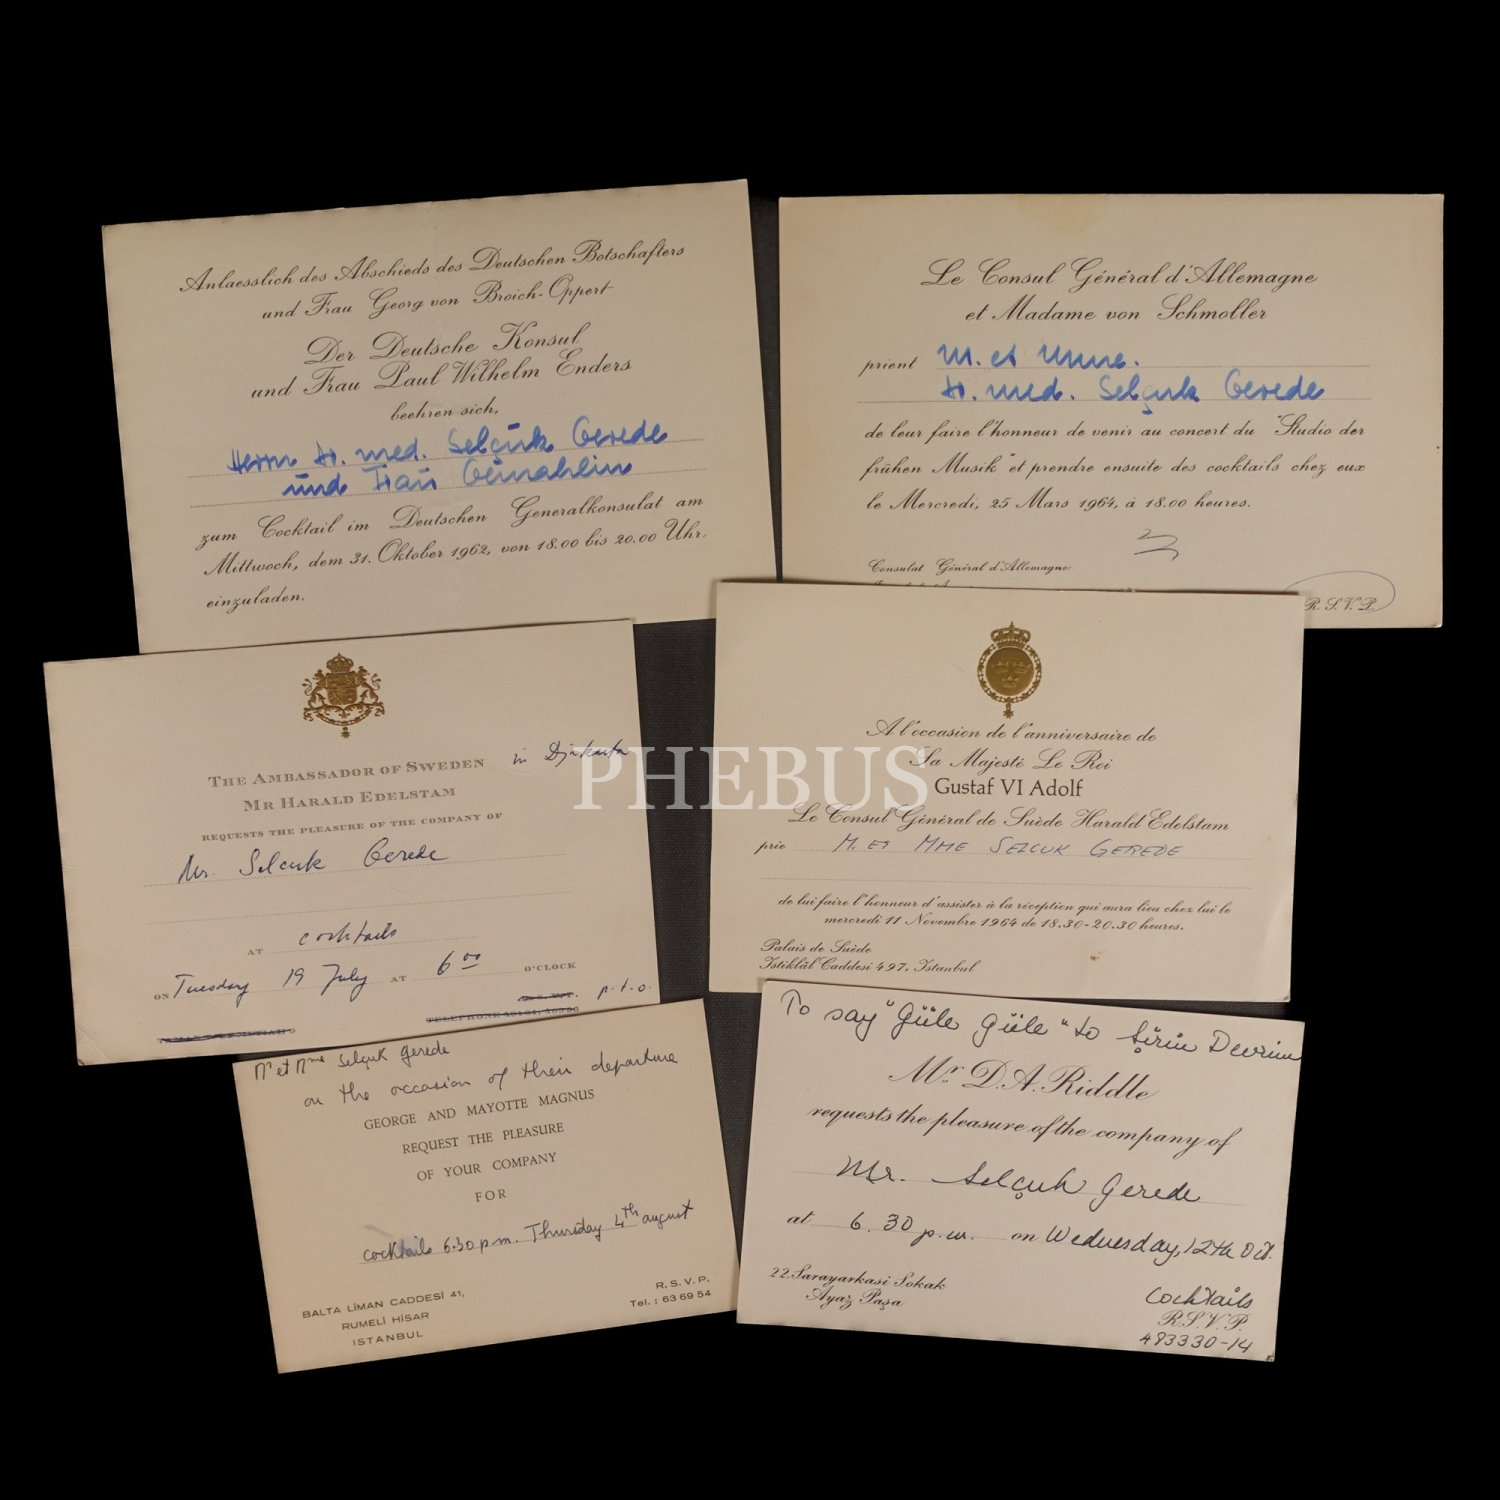 Anlaesslich des Abschieds des Deutschen Botschafters
und Frau Georg von Broich-Oppert
Der Deutsche Konsul
und Frau Paul Wilhelm Enders
beehren sich,
Herrn Dr. med. Selçuk Gerede
und Frau Gemahlin
zum Cocktail im Deutschen Generalkonsulat am
Mittwoch, dem 31. Oktober 1962, von 18.00 bis 20.00 Uhr,
einzuladen.
Le Consul Général d'Allemagne
et Madame von Schmoller
prient M. et Mme.
Dr. med. Selçuk Gerede
de leur faire l'honneur de venir au concert du "Studio der
frühen Musik" et prendre ensuite des cocktails chez eux
le Mercredi, 25 Mars 1964, à 18.00 heures.
Consulat Général d'Allemagne
R. S. V. P.
in Djakarta
THE AMBASSADOR OF SWEDEN
MR HARALD EDELSTAM
REQUESTS THE PLEASURE OF THE COMPANY OF
Mr. Selcuk Gerede
AT cocktails
ON Tuesday 19 July AT 6 00 O'CLOCK
p.t.o.
A l'occasion de l'anniversaire de
Sa Majesté Le Roi
Gustaf VI Adolf
Le Consul Général de Suède Harald Edelstam
prie M. ET MME SELCUK GEREDE
de lui faire l'honneur d'assister à la réception qui aura lieu chez lui le
mercredi 11 Novembre 1964 de 18.30-20.30 heures.
Palais de Suède
Istiklâl Caddesi 497, Istanbul
PHEBUS
Mr et Mme Selçuk Gerede
on the occasion of their departure
GEORGE AND MAYOTTE MAGNUS
REQUEST THE PLEASURE
OF YOUR COMPANY
FOR
cocktails 6.30 p.m. Thursday 4th august
R.S.V.P.
Tel.: 63 69 54
BALTA LİMAN CADDESİ 41,
RUMELİ HİSAR
ISTANBUL
To say "Güle Güle" to Şirin Devrim
Mr. D. A. Riddle
requests the pleasure of the company of
Mr. Selçuk Gerede
at 6.30 p.m. on Wednesday, 12th Oct.
22. Sarayarkasi Sokak
Ayaz Paşa
Cocktails
R.S.V.P.
493330-14